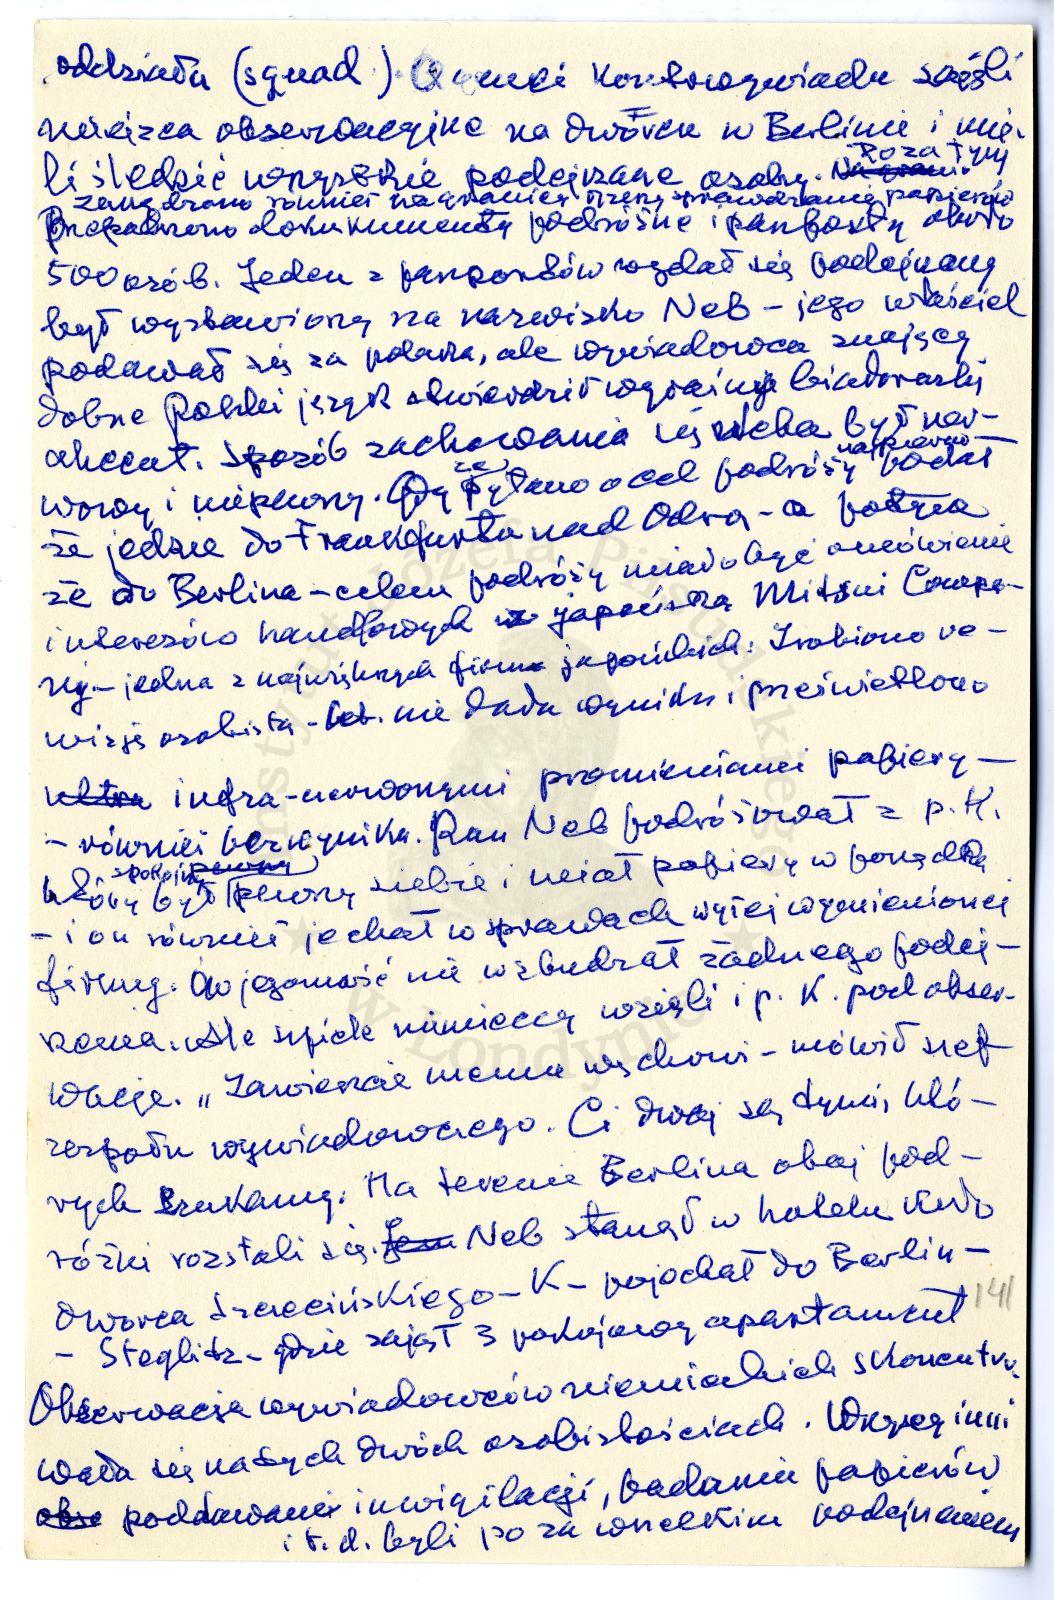 oddziału (squad). Agenci kontrwywiadu zajęli
miejsca obserwacyjne na dworcu w Berlinie i mie-
li śledzić wszystkie podejrzane osoby. Poza tym
zarządzono również na granicy ścisłe sprawdzanie papierów
Przepatrzono dokukumenty podróżne i paszporty około
500 osób. Jeden z paszportów wydał się podejrzany
był wystawiony na nazwisko Neb – jego właściciel
podawał się za polaka, ale wywiadowca znający
dobrze Polski język stwierdził wyraźnie białoruski
akcent. Sposób zachowania się Neba był ner-
wowy i niepewny. Gdy zapytano o cel podróży najpierw podał
że jedzie do Frankfurta nad Odrą – a potem
że do Berlina – celem podróży miało być omówienie
interesów handlowych z japońską Mitsui Compa-
ny – jedna z największych firm japońskich. Zrobiono re-
wizję osobistą – lecz nie dała wyniku i prześwietlono
ultra infra-czerwonymi promieniami papiery –
– również bez wyniku. Pan Neb podróżował z p. K.
który był spokojny pewny siebie i miał papiery w porządku
– i on również jechał w sprawach wyżej wymienionej
firmy. Ów jegomość nie wzbudzał żadnego podej-
rzenia. Ale szpicle niemieccy wzięli i p. K. pod obser-
wację. „Zawierzcie memu węchowi – mówił szef
zespołu wywiadowczego. Ci dwaj są tymi, któ-
rych szukamy. Na terenie Berlina obaj pod-
różni rozstali się. Neb stanął w hotelu koło
dworca Szczecińskiego – K – pojechał do Berlin-
– Steglitz – gdzie zajął 3 pokojowy apartament
141
Obserwacja wywiadowców niemieckich skoncentro-
wała się na tych dwóch osobistościach. Wszyscy inni
poddawani inwigilacji, badaniu papierów
i t. d. byli poza wszelkim podejrzeniem
Instytut Józefa Piłsudskiego
w Londynie